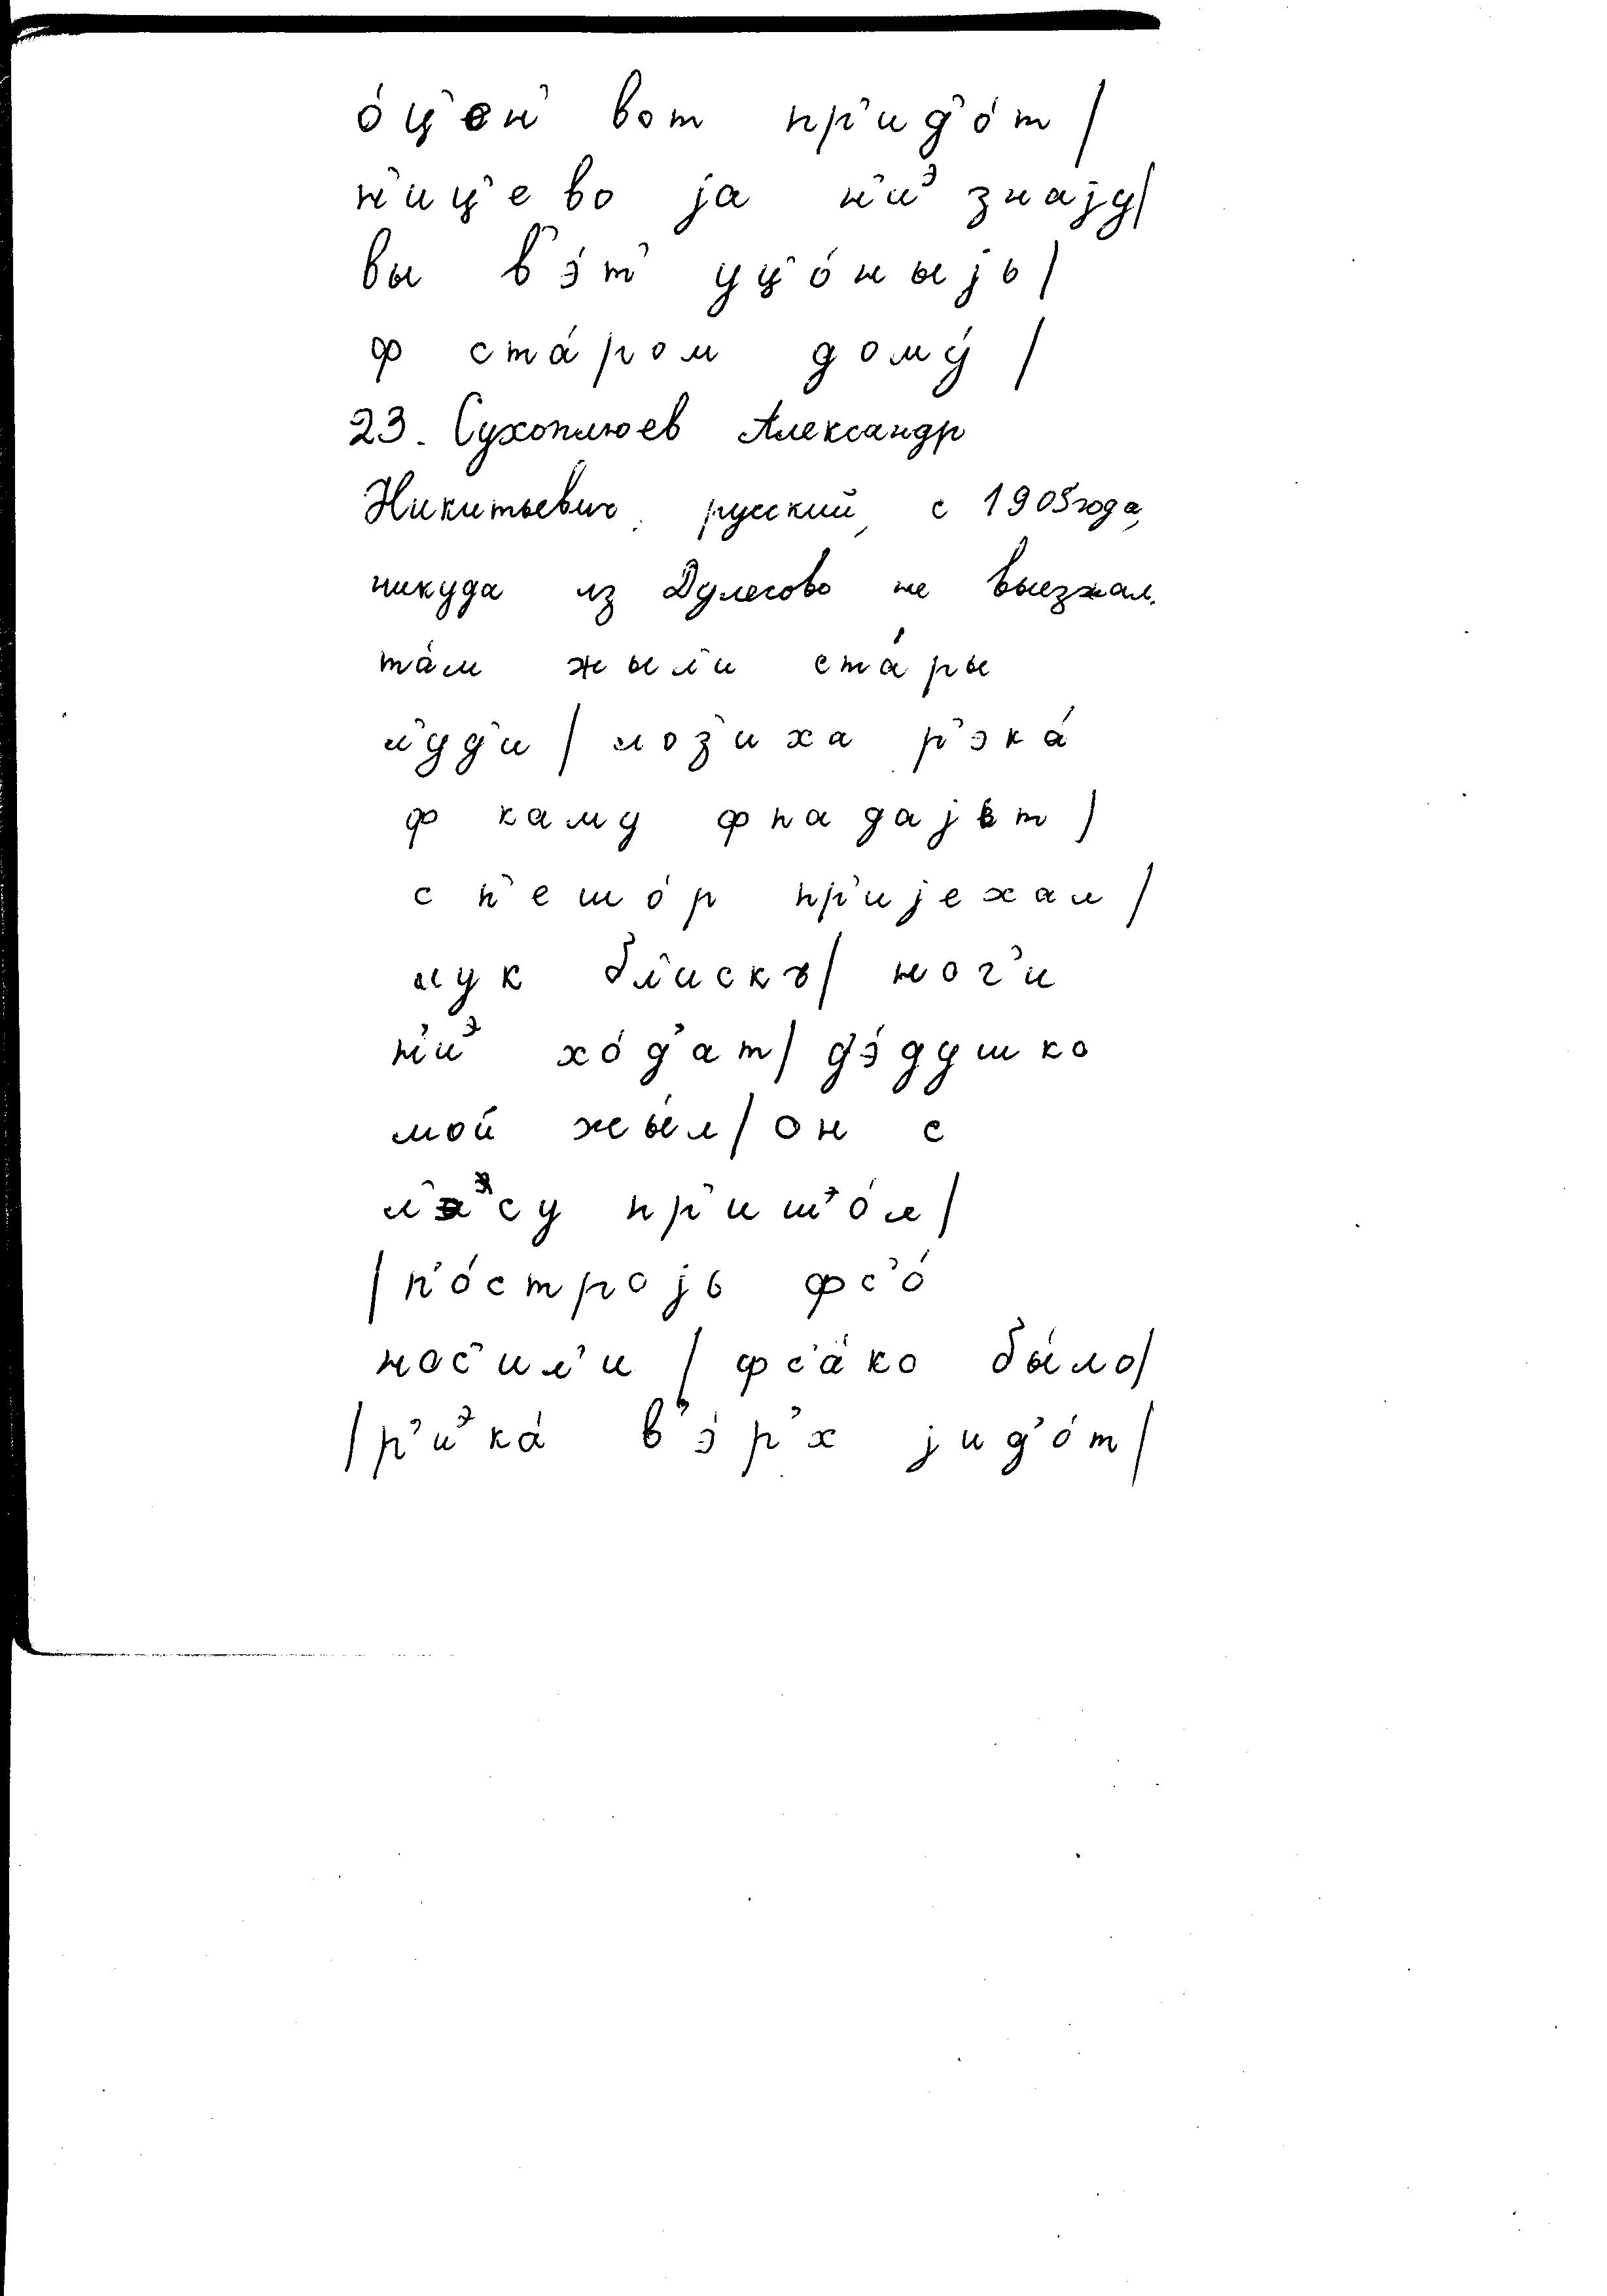 о́ц’ен’ вот пр’ид’о́т /
н’иц’ево jа н’иᵊ знаjу /
вы в’э́т’ уц’о́ныjь /
ф ста́ром дому́ /
23. Сухоплюев Александр
Никитьевич, русский, с 1905 года,
никуда из Дулесово не выезжал.
та́м жыл’и ста́ры
л’уд’и / лоз’иха р’эка́
ф каму фпадаjьт /
с п’ешо́р пр’иjехал /
лук бл’искъ / ног’и
н’иᵊ хо́д’ат / д’э́душко
мой жы́л / он с
су пр’иш’о́л /
/ п’о́строjь фс’о́
нос’ил’и / фс’а́ко бы́ло /
/ р’иᵊка́ в’э́р’х jид’о́т /